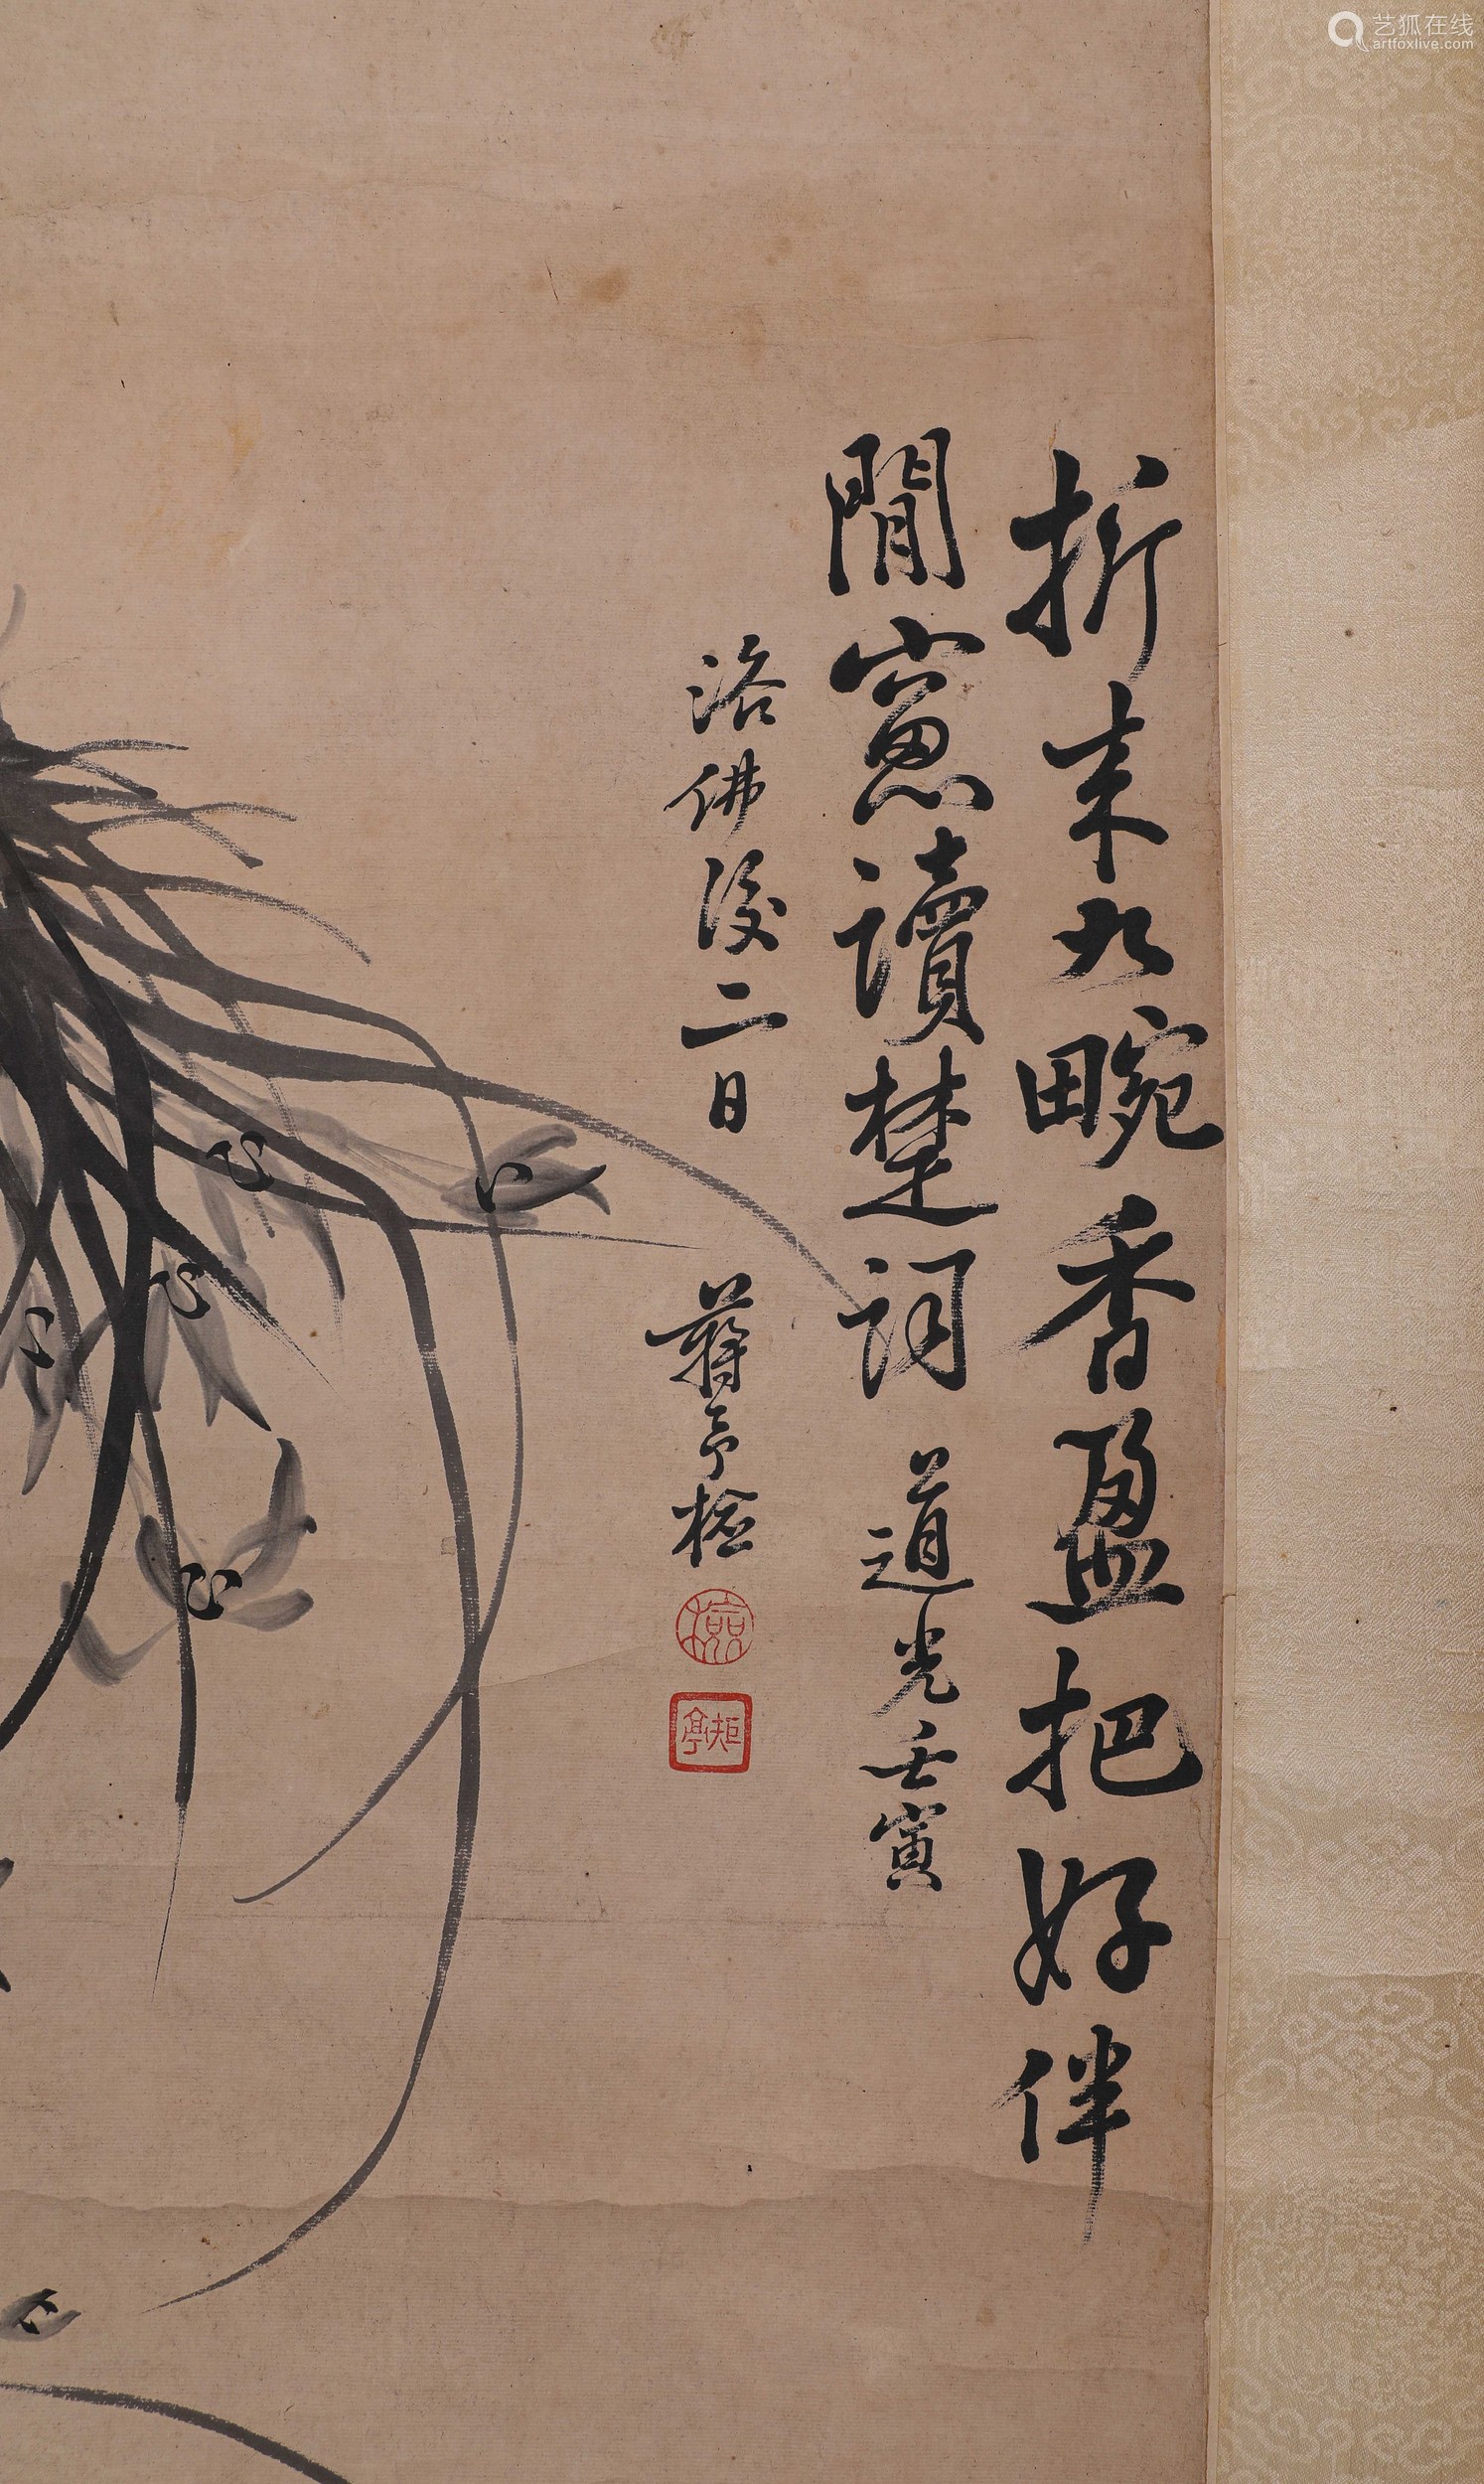 折来九畹香盈把好伴
閒窻讀楚詞 道光壬寅
浴佛後二日
蔣予檢
檢
矩亭
艺狐在线
artfoxlive.com